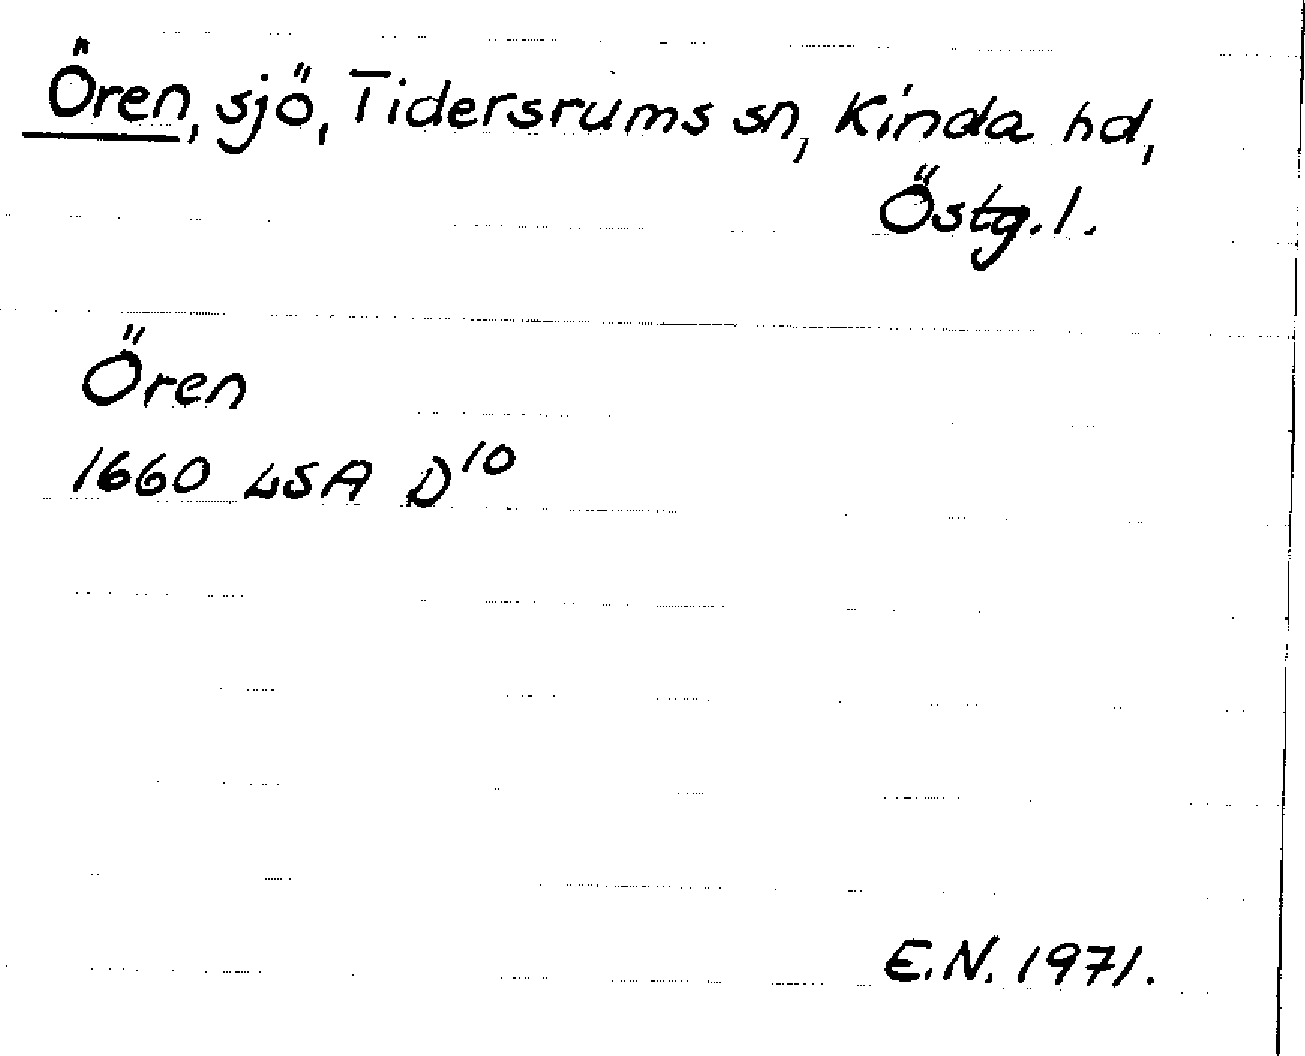 Ören, sjö, Tidersrums sn, Kinda hd,
Östg.l.
Ören
1660 LSA D10
E.N. 1971.